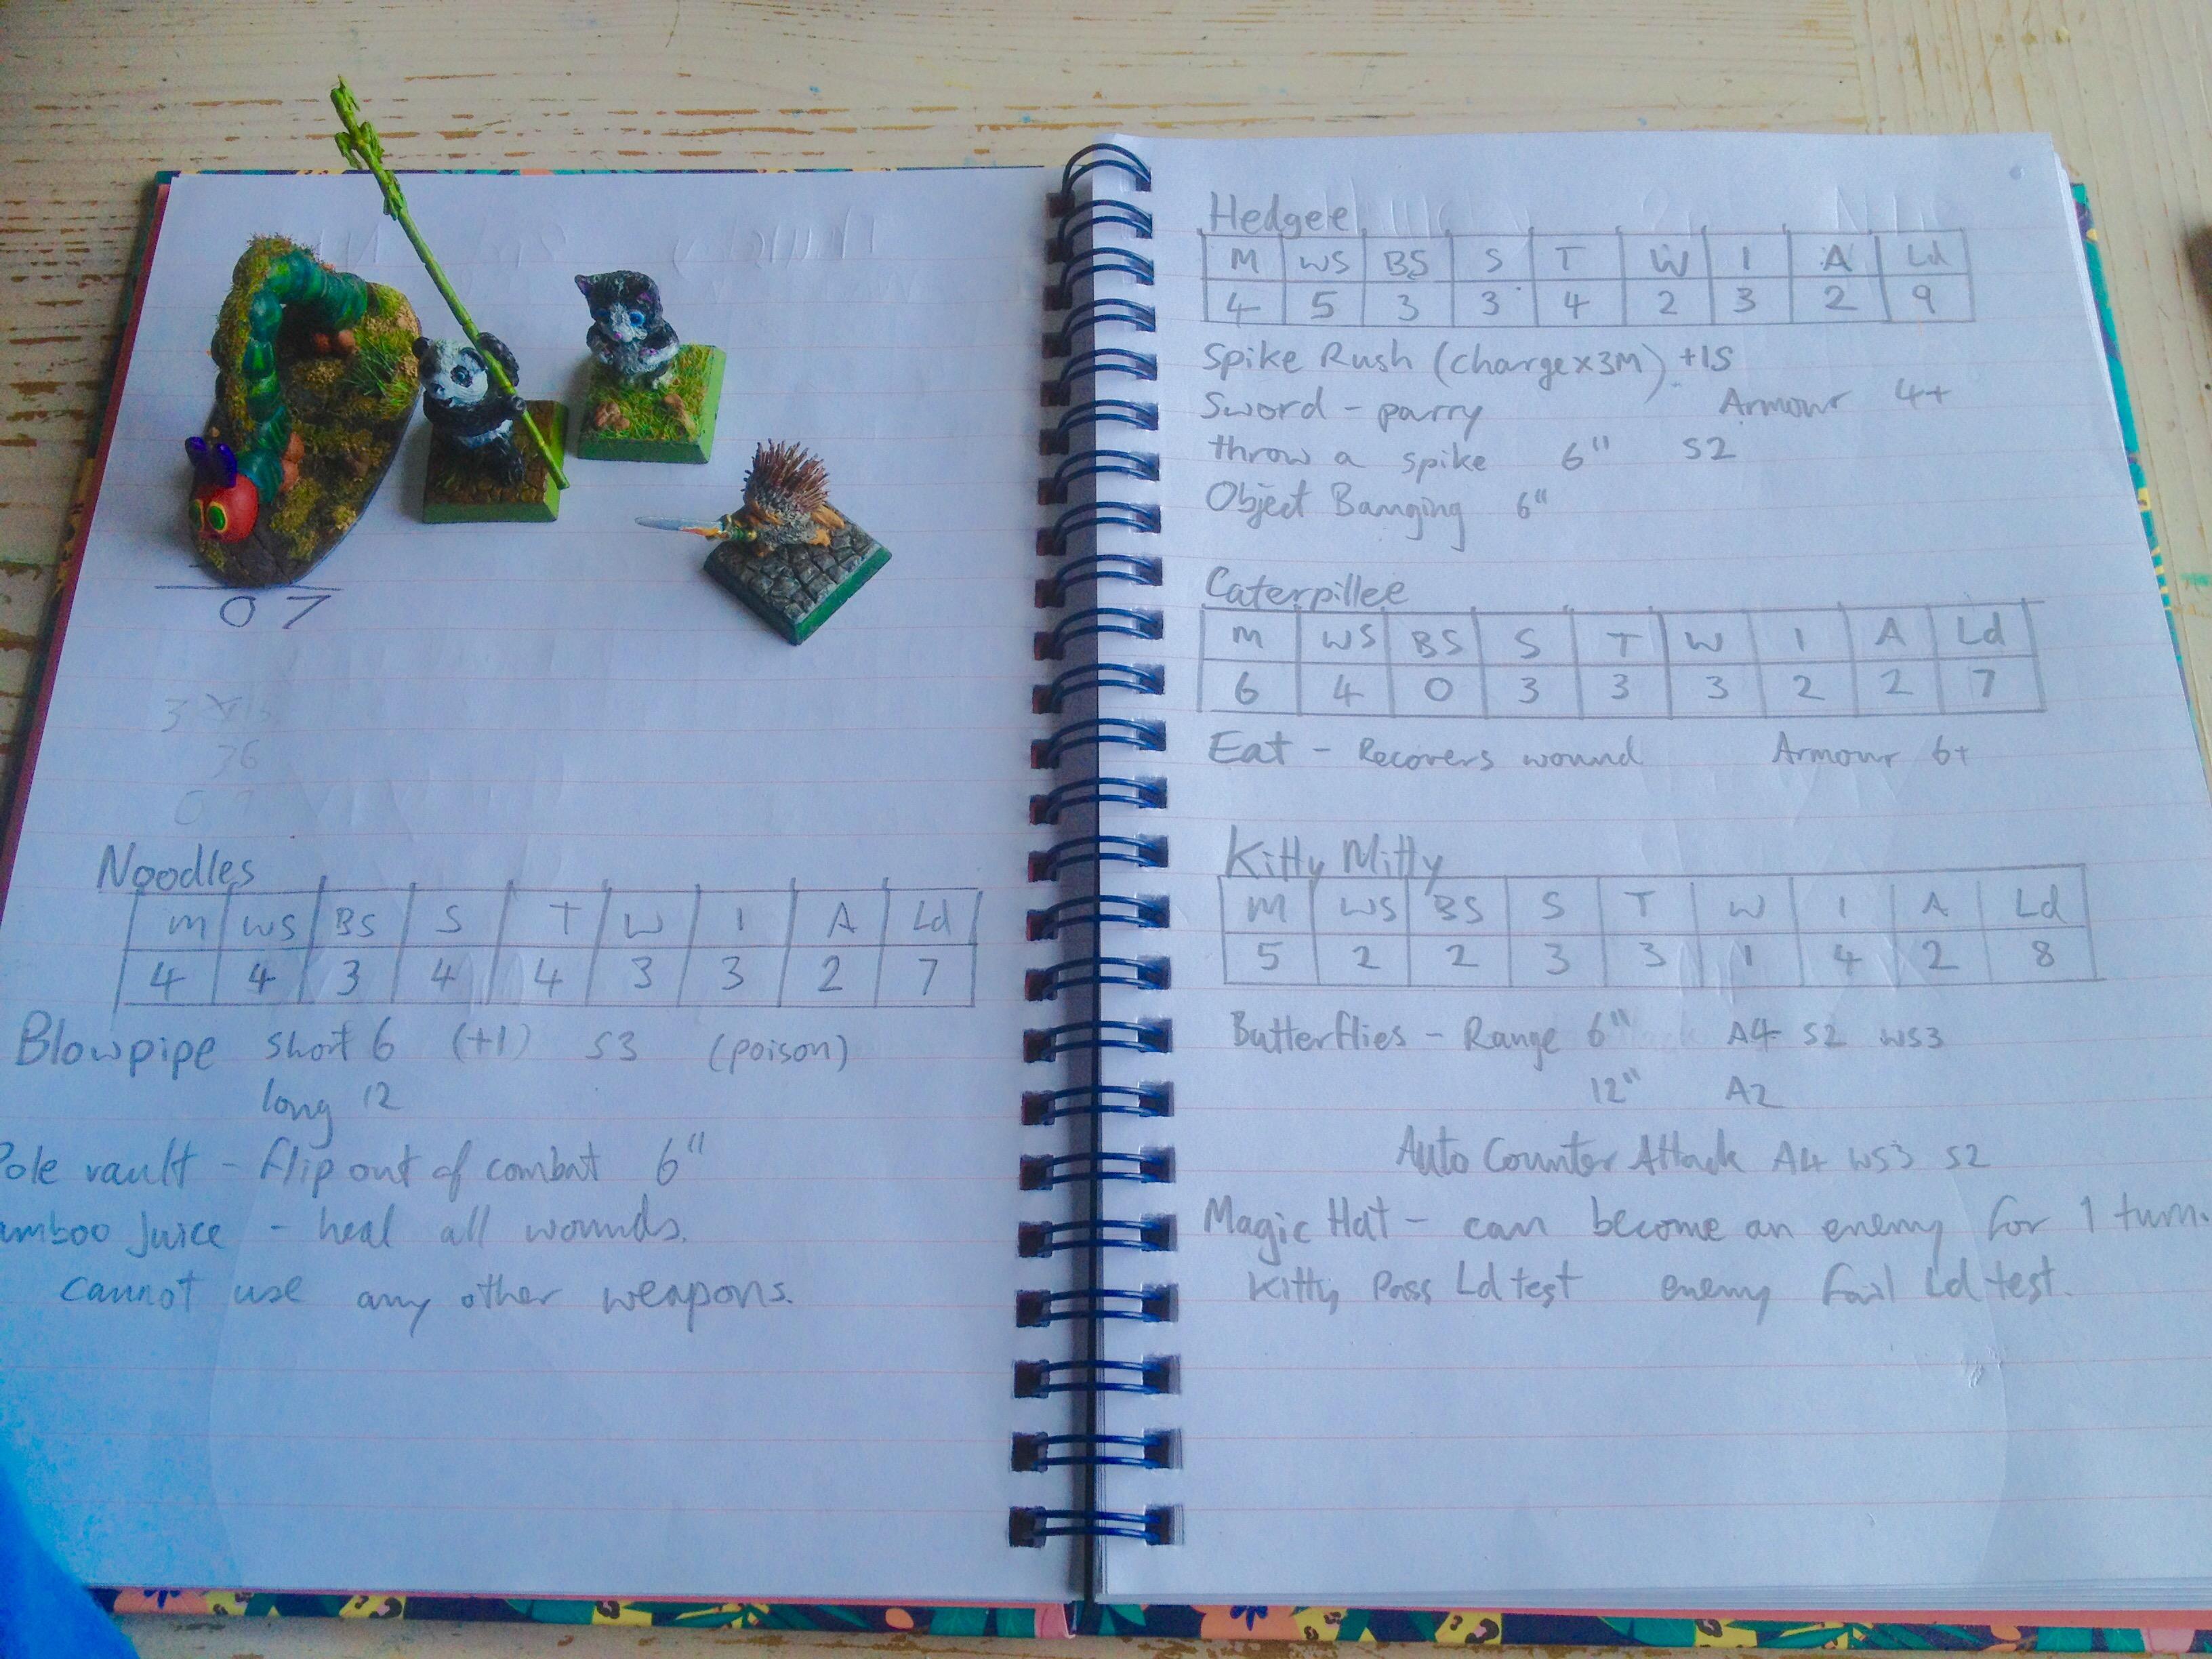 07
36
Noodles
M WS BS S T W I A Ld
4 4 3 4 4 3 3 2 7
Blowpipe short 6 (+1) S3 (poison)
long 12
Pole vault - flip out of combat 6"
amboo Juice - heal all wounds.
cannot use any other weapons.
Hedgee
M WS BS S T W I A Ld
4 5 3 3 4 2 3 2 9
Spike Rush (charge x3M) +1S
Sword - parry Armour 4+
throw a spike 6" S2
Object Banging 6"
Caterpillee
M WS BS S T W I A Ld
6 4 0 3 3 3 2 2 7
Eat - Recovers wound Armour 6+
Kitty Mitty
M WS BS S T W I A Ld
5 2 2 3 3 1 4 2 8
Butterflies - Range 6" A4 S2 WS3
12" A2
Auto Counter Attack A4 WS3 S2
Magic Hat - can become an enemy for 1 turn.
Kitty Pass Ld test enemy fail Ld test.